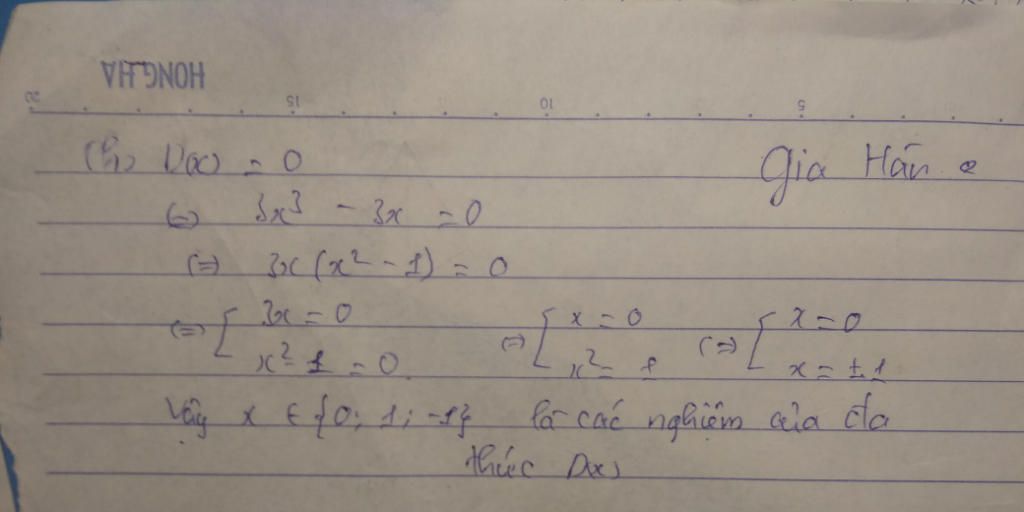 HONG HA
20 15 10 5
(h) D(x) = 0 Gia Hân
(=) 3x³ - 3x = 0
(=) 3x (x² - 1) = 0
(=) [ 3x = 0 (=) [ x = 0 (=) [ x = 0
x² - 1 = 0 x² = 1 x = ±1
Vậy x ∈ {0; 1; -1} là các nghiệm của đa
thức D(x)